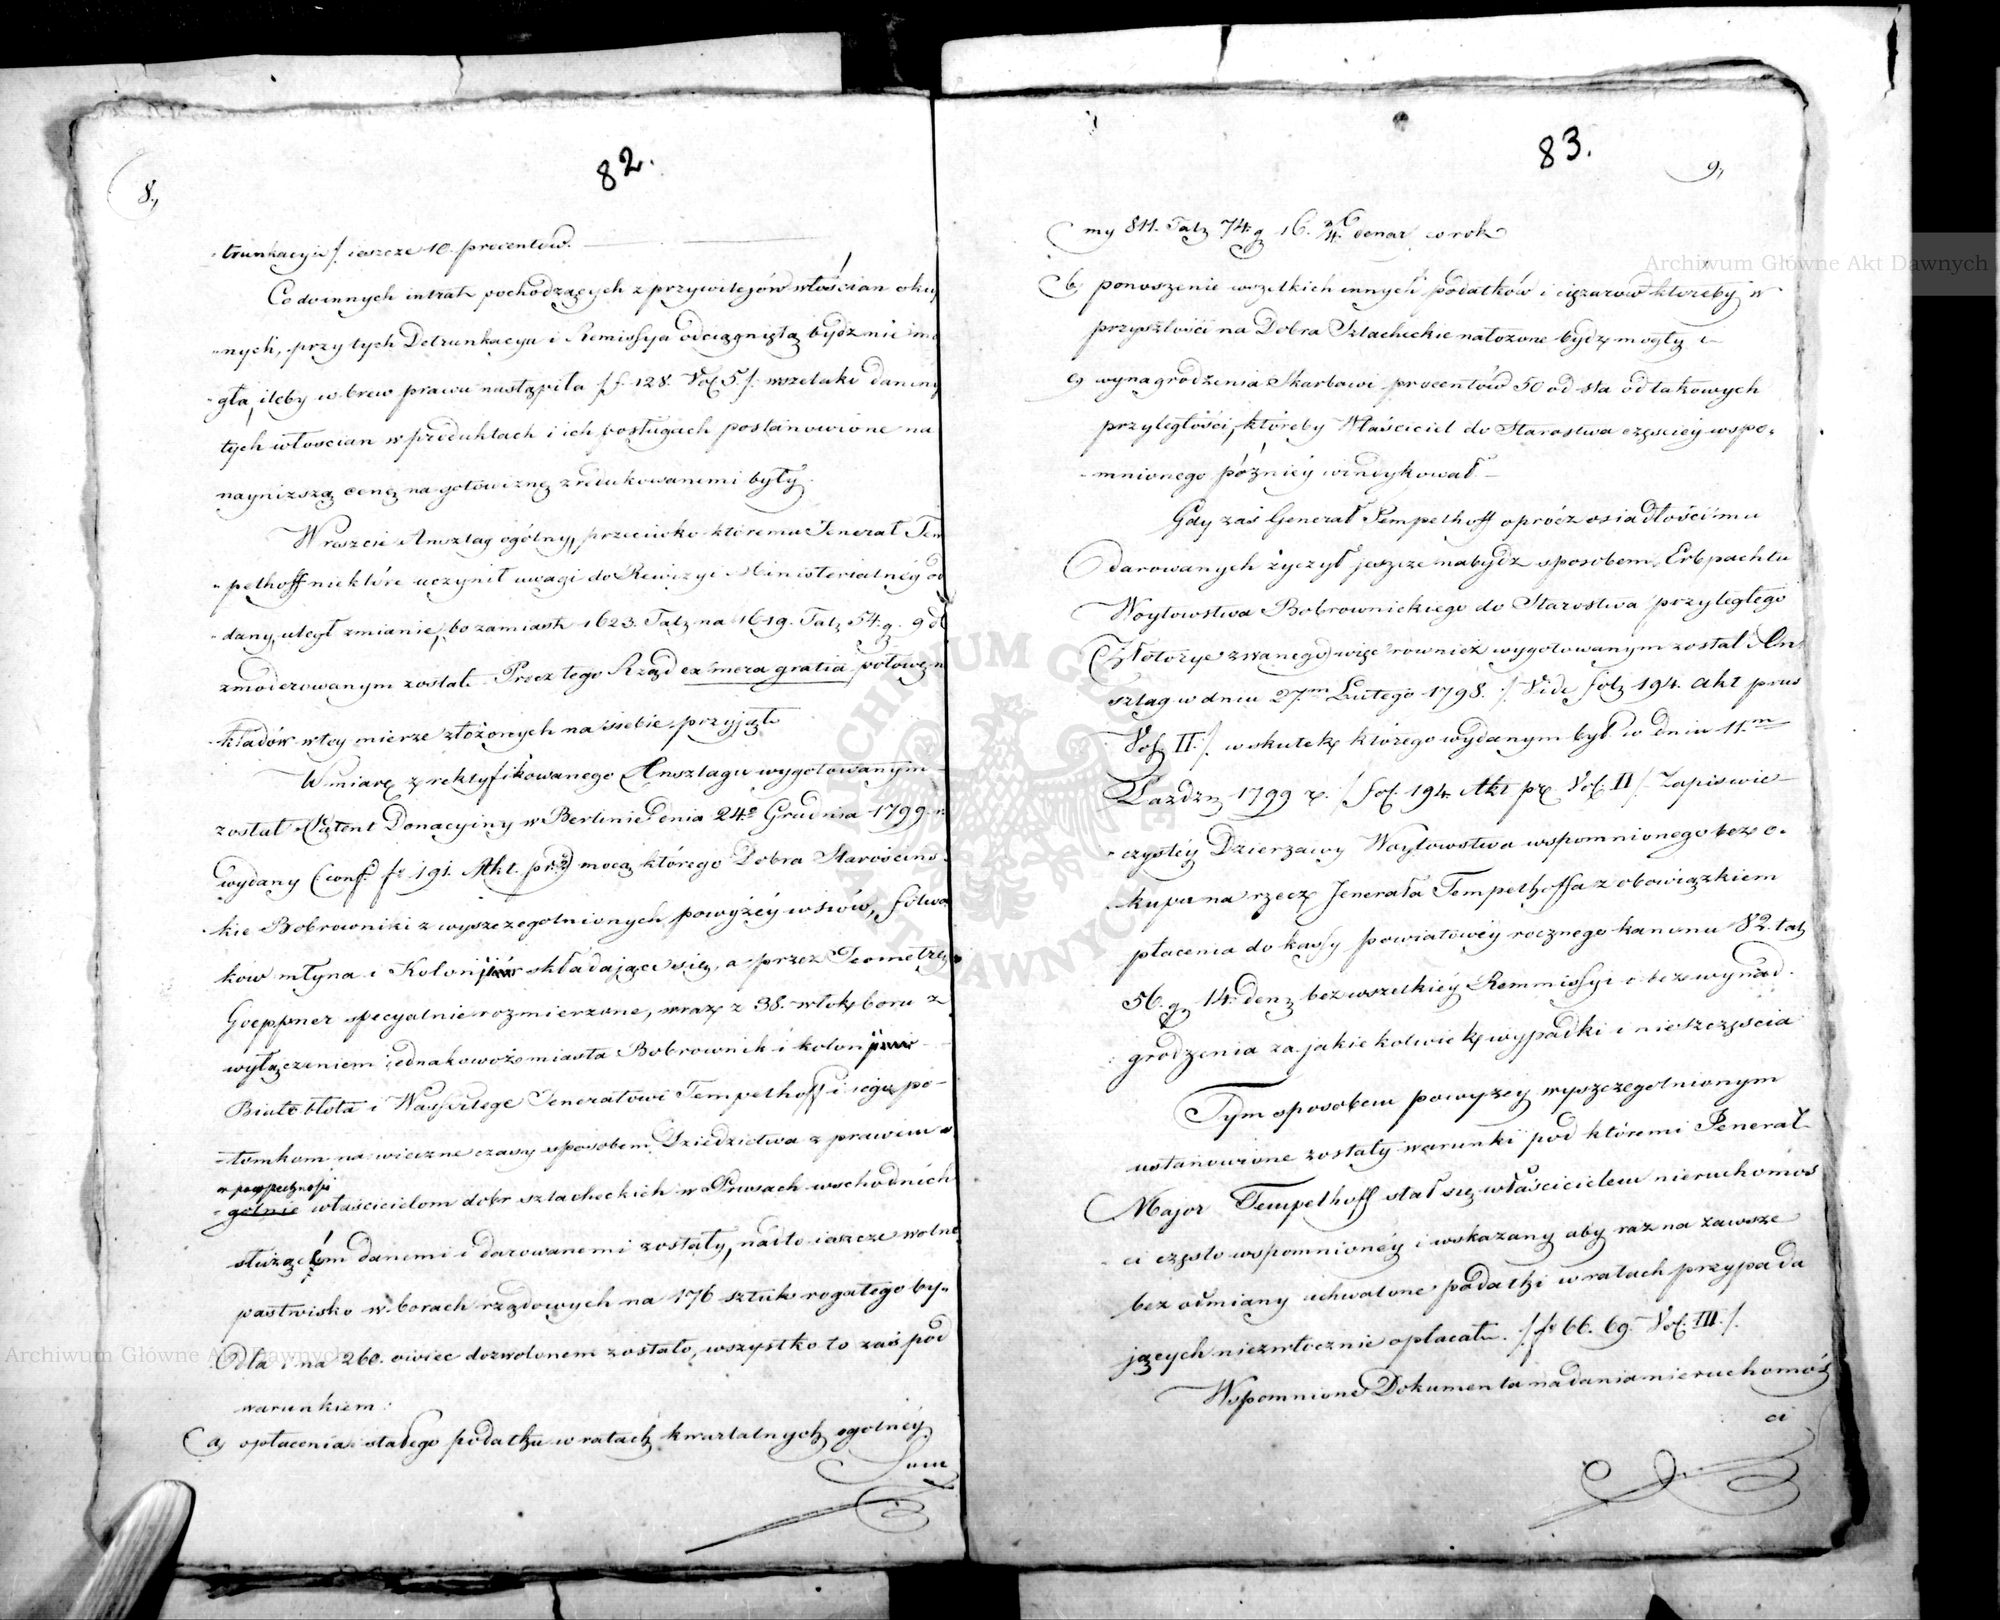 82.
8.,
-trunkacyi /. ieszcze 10. procentow.
Co do innych intrat pochodzących z przywilejów włościan oku
-nych, przy tych Detrunkacya i Remissya odciągniętą bydz nie mo
-gła, ileby w brew prawu nastąpiła /: f. 128. Vol. 5 :/ wszelakie daniny
tych włoscian w produktach i ich posługach postanowione na
naynizszą cenę na gotowiznę zredukowanemi były.
Wreszcie Anszlag ogólny, przeciwko któremu Jenerał Tem
-pelhoff niektóre uczynił uwagi do Rewizyi Ministerialnéy od
-dany, uległ zmianie, bo zamiast 1623. Tal. na 1619. Tal. 54. g. 9 d
zmoderowanym został. Procz tego Rząd ex mera gratia połowę na
kładów w tey mierze złożonych na siebie przyjął.
W miarę zrektyfikowanego Anszlagu wygotowanym
został Patent Donacyiny w Berlinie dnia 24º Grudnia 1799. r.
wydany (conf. fº 191. Akt. pr.) mocą którego Dobra Starościns
kie Bobrowniki z wyszczegolnionych powyżéy wsiów, folwar
kow młyna i Kolonij składające się, a przez Geometrę
Goeppner specyalnie rozmierzone, wraz z 38. włok boru z
wyłączeniem jednakowoż miasta Bobrownik i kolonij
Białobłota i Wasserlege Jenerałowi Tempelhoff i iego po-
-tomkom na wieczne czasy sposobem Dziedzictwa z prawem o
w powszechności
-gólnie właścicielom dobr szlacheckich w Prusach wschodnich
służącém danemi i darowanemi zostały, nadto ieszcze wolne
pastwisko w borach rządowych na 176 sztuk rogatego by-
dla i na 260. owiec dozwolonem zostało, wszystko to zaś pod
warunkiem:
a) opłacenia stałego podatku w ratach kwartalnych ogolnéy
Sum
83.
9,
my 811. Talr. 74. g. 16. denar. co rok
b) ponoszenie wszelkich innych podatków i ciężarow ktoreby w
przyszłości na Dobra Szlacheckie nałozone bydz mogły i
c) wynagrodzenia Skarbowi procentów 50 od sta od takowych
przyległości, któreby Właściciel do Starostwa częściey wspo-
-mnionego późniéy windykował
Gdy zaś Generał Tempelhoff oprócz osiadłości mu
darowanych życzył jeszcze nabydz sposobem Erbpachtu
Woytowstwa Bobrownickiego do Starostwa przyległego
Złotorye zwanego więc również wygotowanym został An-
szlag w dniu 27.m Lutego 1798. /: Vide fol. 194. akt prus
Vol. II :/. w skutek którego wydanym był w dniu 11.m
Pazdz. 1799 r. /: fol. 194. Akt pr. Vol. II / Zapis wie-
-czystéy Dzierzawy Woytowstwa wspomnionego bez o-
-kupu na rzecz Jenerała Tempelhoffa z obowiązkiem
płacenia do kassy powiatowéy rocznego kanonu 82. tal.
56. g. 14. den. bez wszelkiéy Remmissyi i bez wynad-
grodzenia za jakie kolwiek wypadki i nieszczęścia
Tym sposobem powyzéy wyszczegolnionym
ustanowione zostały warunki pod któremi Jenerał
Major Tempelhoff stał się właścicielem nieruchomoś
ci często wspomnionéy i wskazany aby raz na zawsze
bez odmiany uchwalone podatki w ratach przypada
jących niezwłocznie opłacał. /: fº 66. 69. Vol. III :/.
Wspomnione Dokumenta nadania nieruchomoś
ci
Archiwum Główne Akt Dawnych
Archiwum Główne Akt Dawnych
ARCHIWUM GŁÓWNE AKT DAWNYCH